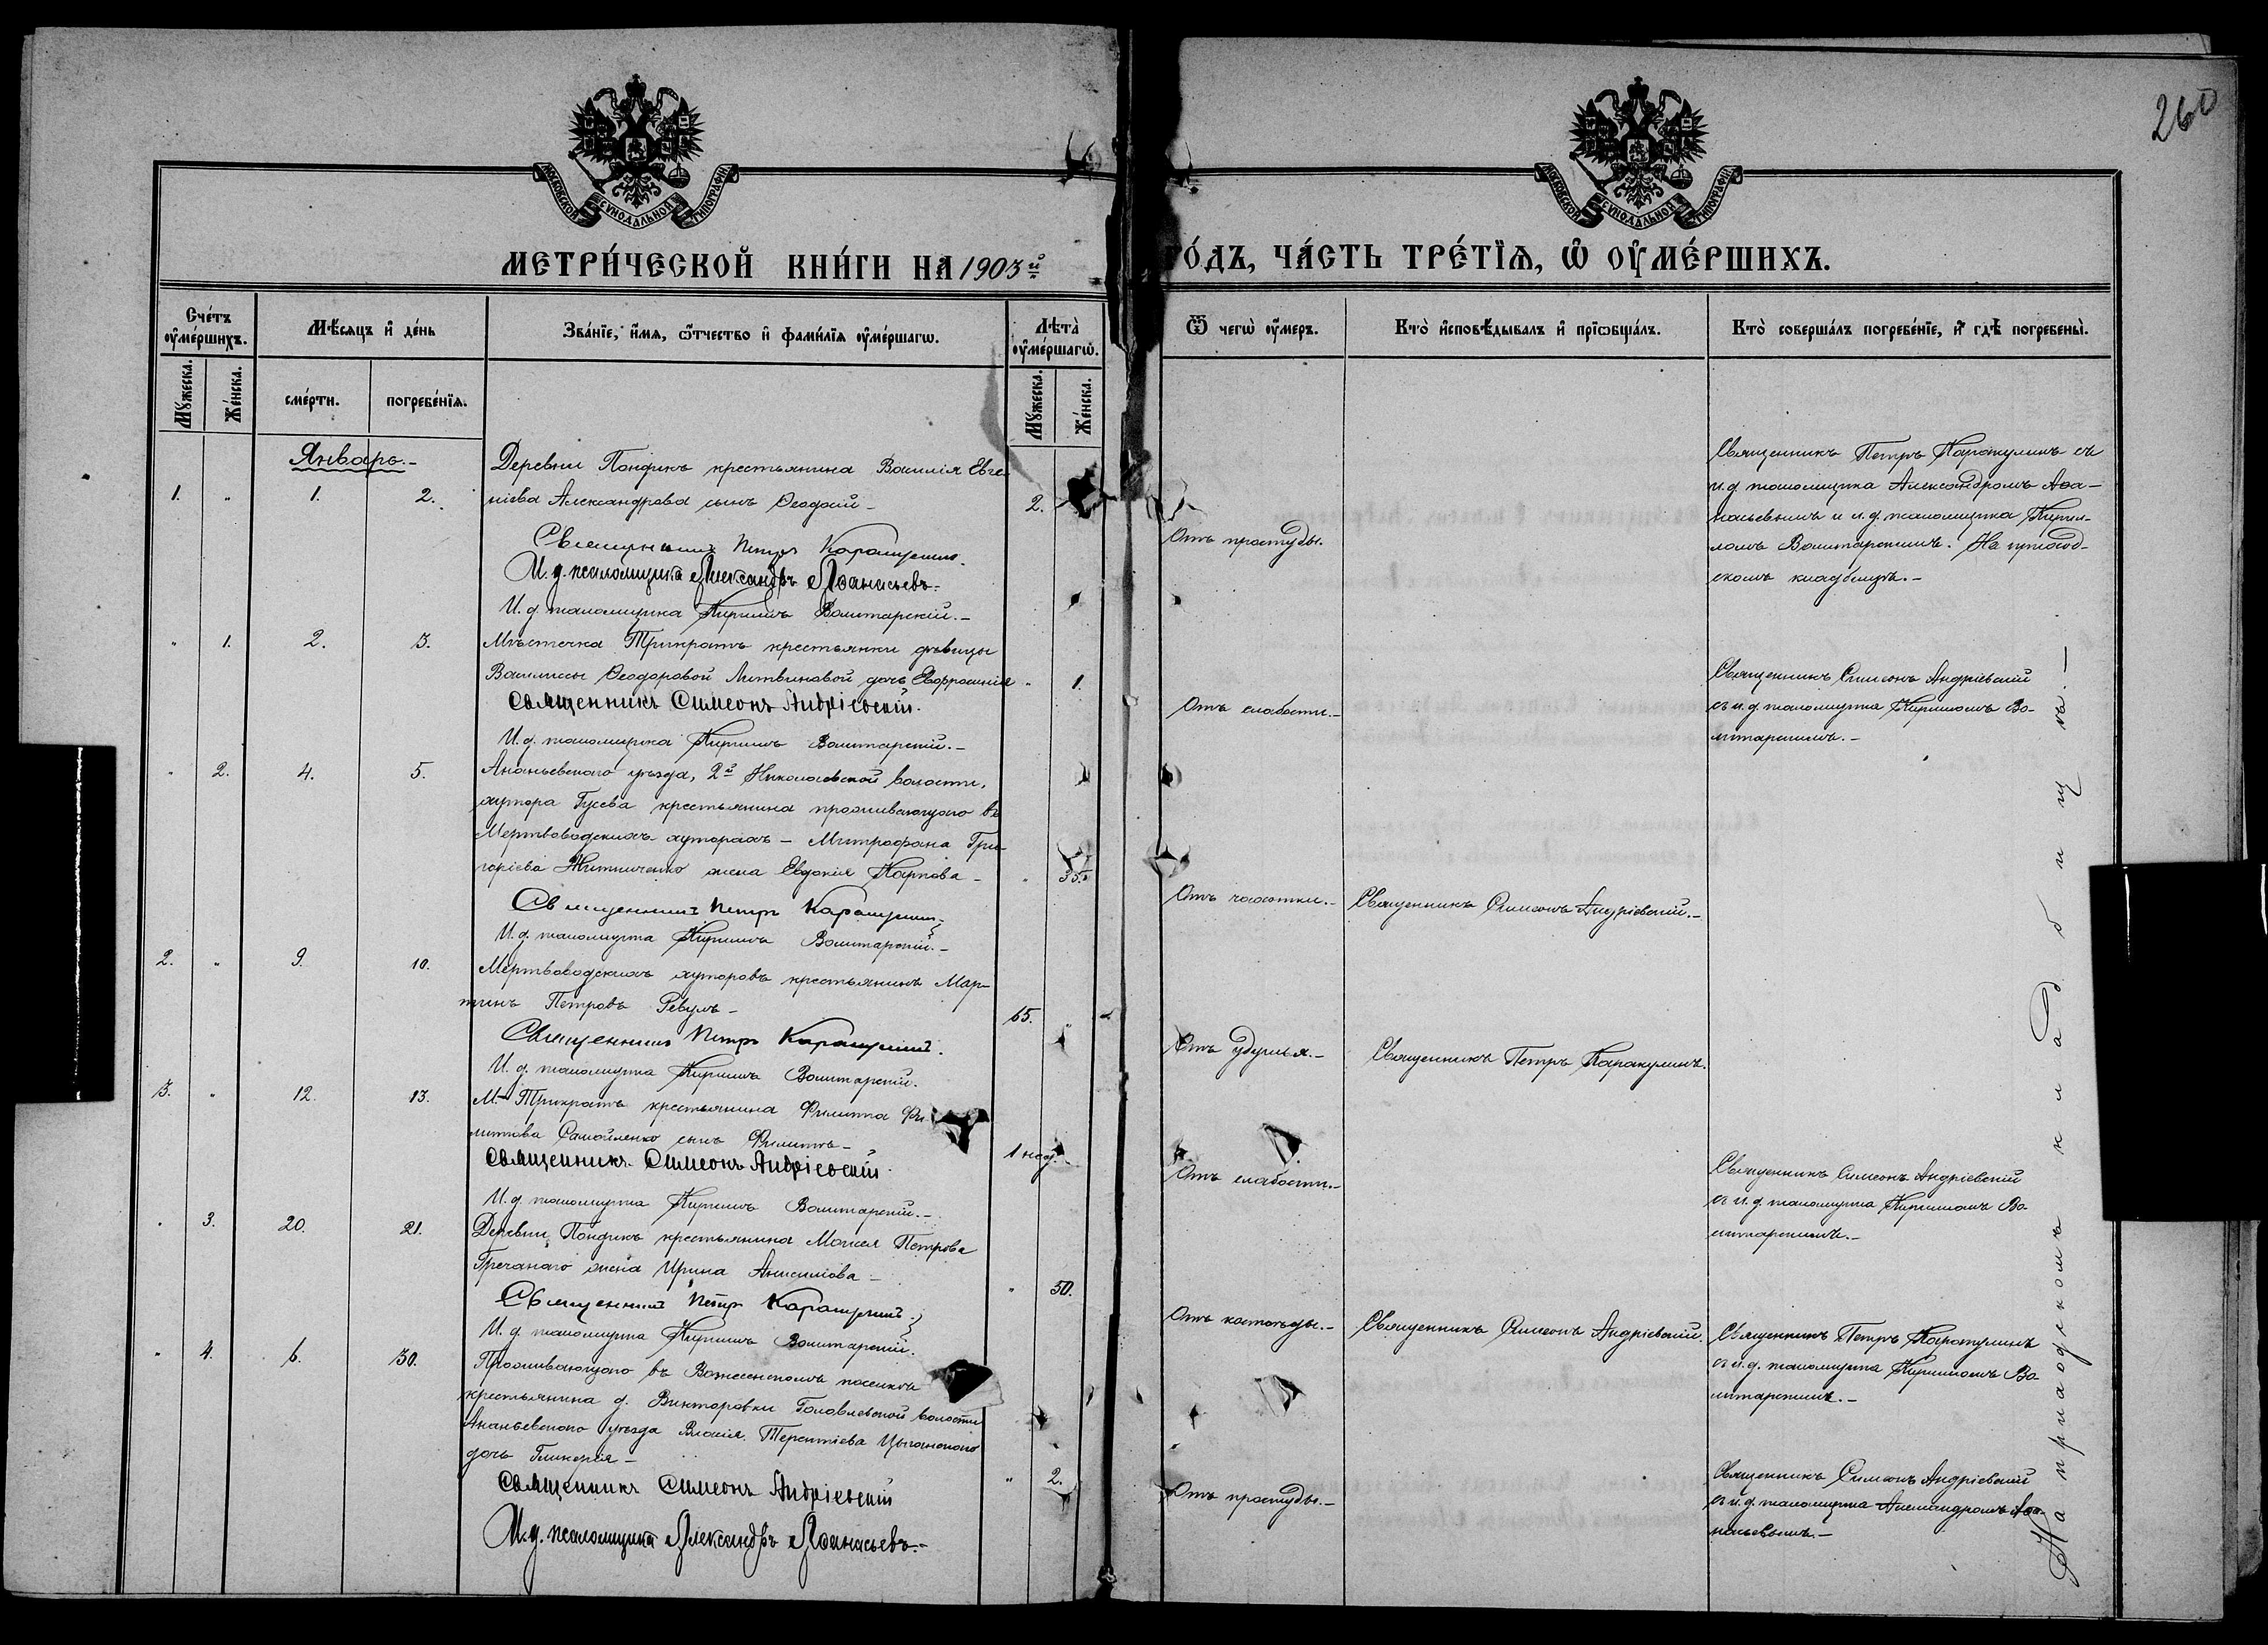 260
МОСКОВСКОЙ СѴНОДАЛЬНОЙ ТИПОГРАФІИ
МОСКОВСКОЙ СѴНОДАЛЬНОЙ ТИПОГРАФІИ
МЕТРИ́ЧЕСКОЙ КНИ́ГИ НА 1903й
ГО́ДЪ, ЧА́СТЬ ТРЕ́ТЇѦ, Ѡ҆ ОУ҆МЕ́РШИХЪ.
Сче́тъ оу҆ме́ршихъ.
Мѣ́сѧцъ и҆ де́нь
Зва́нїе, и҆́мѧ, ѻ҆́тчество и҆ фами́лїѧ оу҆ме́ршагѡ.
Лѣ́та оу҆ме́ршагѡ.
Ѿ чегѡ̀ оу҆́меръ.
Кто̀ и҆сповѣ́дывалъ и҆ прїѡбща́лъ.
Кто̀ соверша́лъ погребе́нїе, и҆ гдѣ̀ погребены̀.
Мꙋ́жеска.
Же́нска.
сме́рти.
погребе́нїѧ.
Мꙋ́жеска.
Же́нска.
Январь.-
1. " 1. 2.
Деревни Пондикъ крестьянина Василія Евге-
ніева Александрова сынъ Ѳеодосій - 2.
Священникъ Петръ Каракулинъ.
И. д. псаломщика Александръ Аѳанасьевъ.
И. д. псаломщика Кириллъ Волитарскій.-
Отъ простуды.
Священникъ Петръ Каракулинъ съ
и. д. псаломщика Александромъ Аѳа-
насьевымъ и и. д. псаломщика Кирил-
ломъ Волитарскимъ. На приход-
скомъ кладбищѣ.-
" 1. 2. 3.
Мѣстечка Трикратъ крестьянки дѣвицы
Василисы Ѳеодоровой Литвиновой дочь Евфросинія " 1.
Священникъ Симеонъ Андріевскій.
И. д. псаломщика Кириллъ Волитарскій.-
Отъ слабости.-
Священникъ Симеонъ Андріевскій
съ и. д. псаломщика Кирилломъ Во-
литарскимъ.-
" 2. 4. 5.
Ананьевскаго уѣзда, 2й Николаевской волости,
хутора Гусева крестьянина проживающаго въ
Мертвоводскихъ хуторахъ - Митрофана Гри-
горіева Житниченко жена Евдокія Карпова - " 35.
Священникъ Петръ Каракулинъ
И. д. псаломщика Кириллъ Волитарскій.-
Отъ чахотки.-
Священникъ Симеонъ Андріевскій.-
2. " 9. 10.
Мертвоводскихъ хуторовъ крестьянинъ Мар-
тинъ Петровъ Ревулъ - 65. "
Священникъ Петръ Каракулинъ.
И. д. псаломщика Кириллъ Волитарскій.
Отъ удушья.-
Священникъ Петръ Каракулинъ.
3. " 12. 13.
М. Трикратъ крестьянина Филиппа Фи-
липпова Самойленко сынъ Филиппъ - 1 нед.
Священникъ Симеонъ Андріевскій.
И. д. псаломщика Кириллъ Волитарскій.-
Отъ слабости.-
Священникъ Симеонъ Андріевскій
съ и. д. псаломщика Кирилломъ Во-
литарскимъ.-
" 3. 20. 21.
Деревни Пондикъ крестьянина Моисея Петрова
Гречанаго жена Ирина Анисимова - " 50.
Священникъ Петръ Каракулинъ.
И. д. псаломщика Кириллъ Волитарскій.
Отъ костоѣды.-
Священникъ Симеонъ Андріевскій.
Священникъ Петръ Каракулинъ
съ и. д. псаломщика Кирилломъ Во-
литарскимъ.-
" 4. 6. 30.
Проживающаго въ Вознесенскомъ поселкѣ
крестьянина д. Викторовки Головлевской волости
Ананьевскаго уѣзда Власія Терентіева Цыганскаго
дочь Гликерія - " 2.
Священникъ Симеонъ Андріевскій
И. д. псаломщика Александръ Аѳанасьевъ.-
Отъ простуды.-
Священникъ Симеонъ Андріевскій
съ и. д. псаломщика Александромъ Аѳа-
насьевымъ.-
На приходскомъ кладбищѣ.-